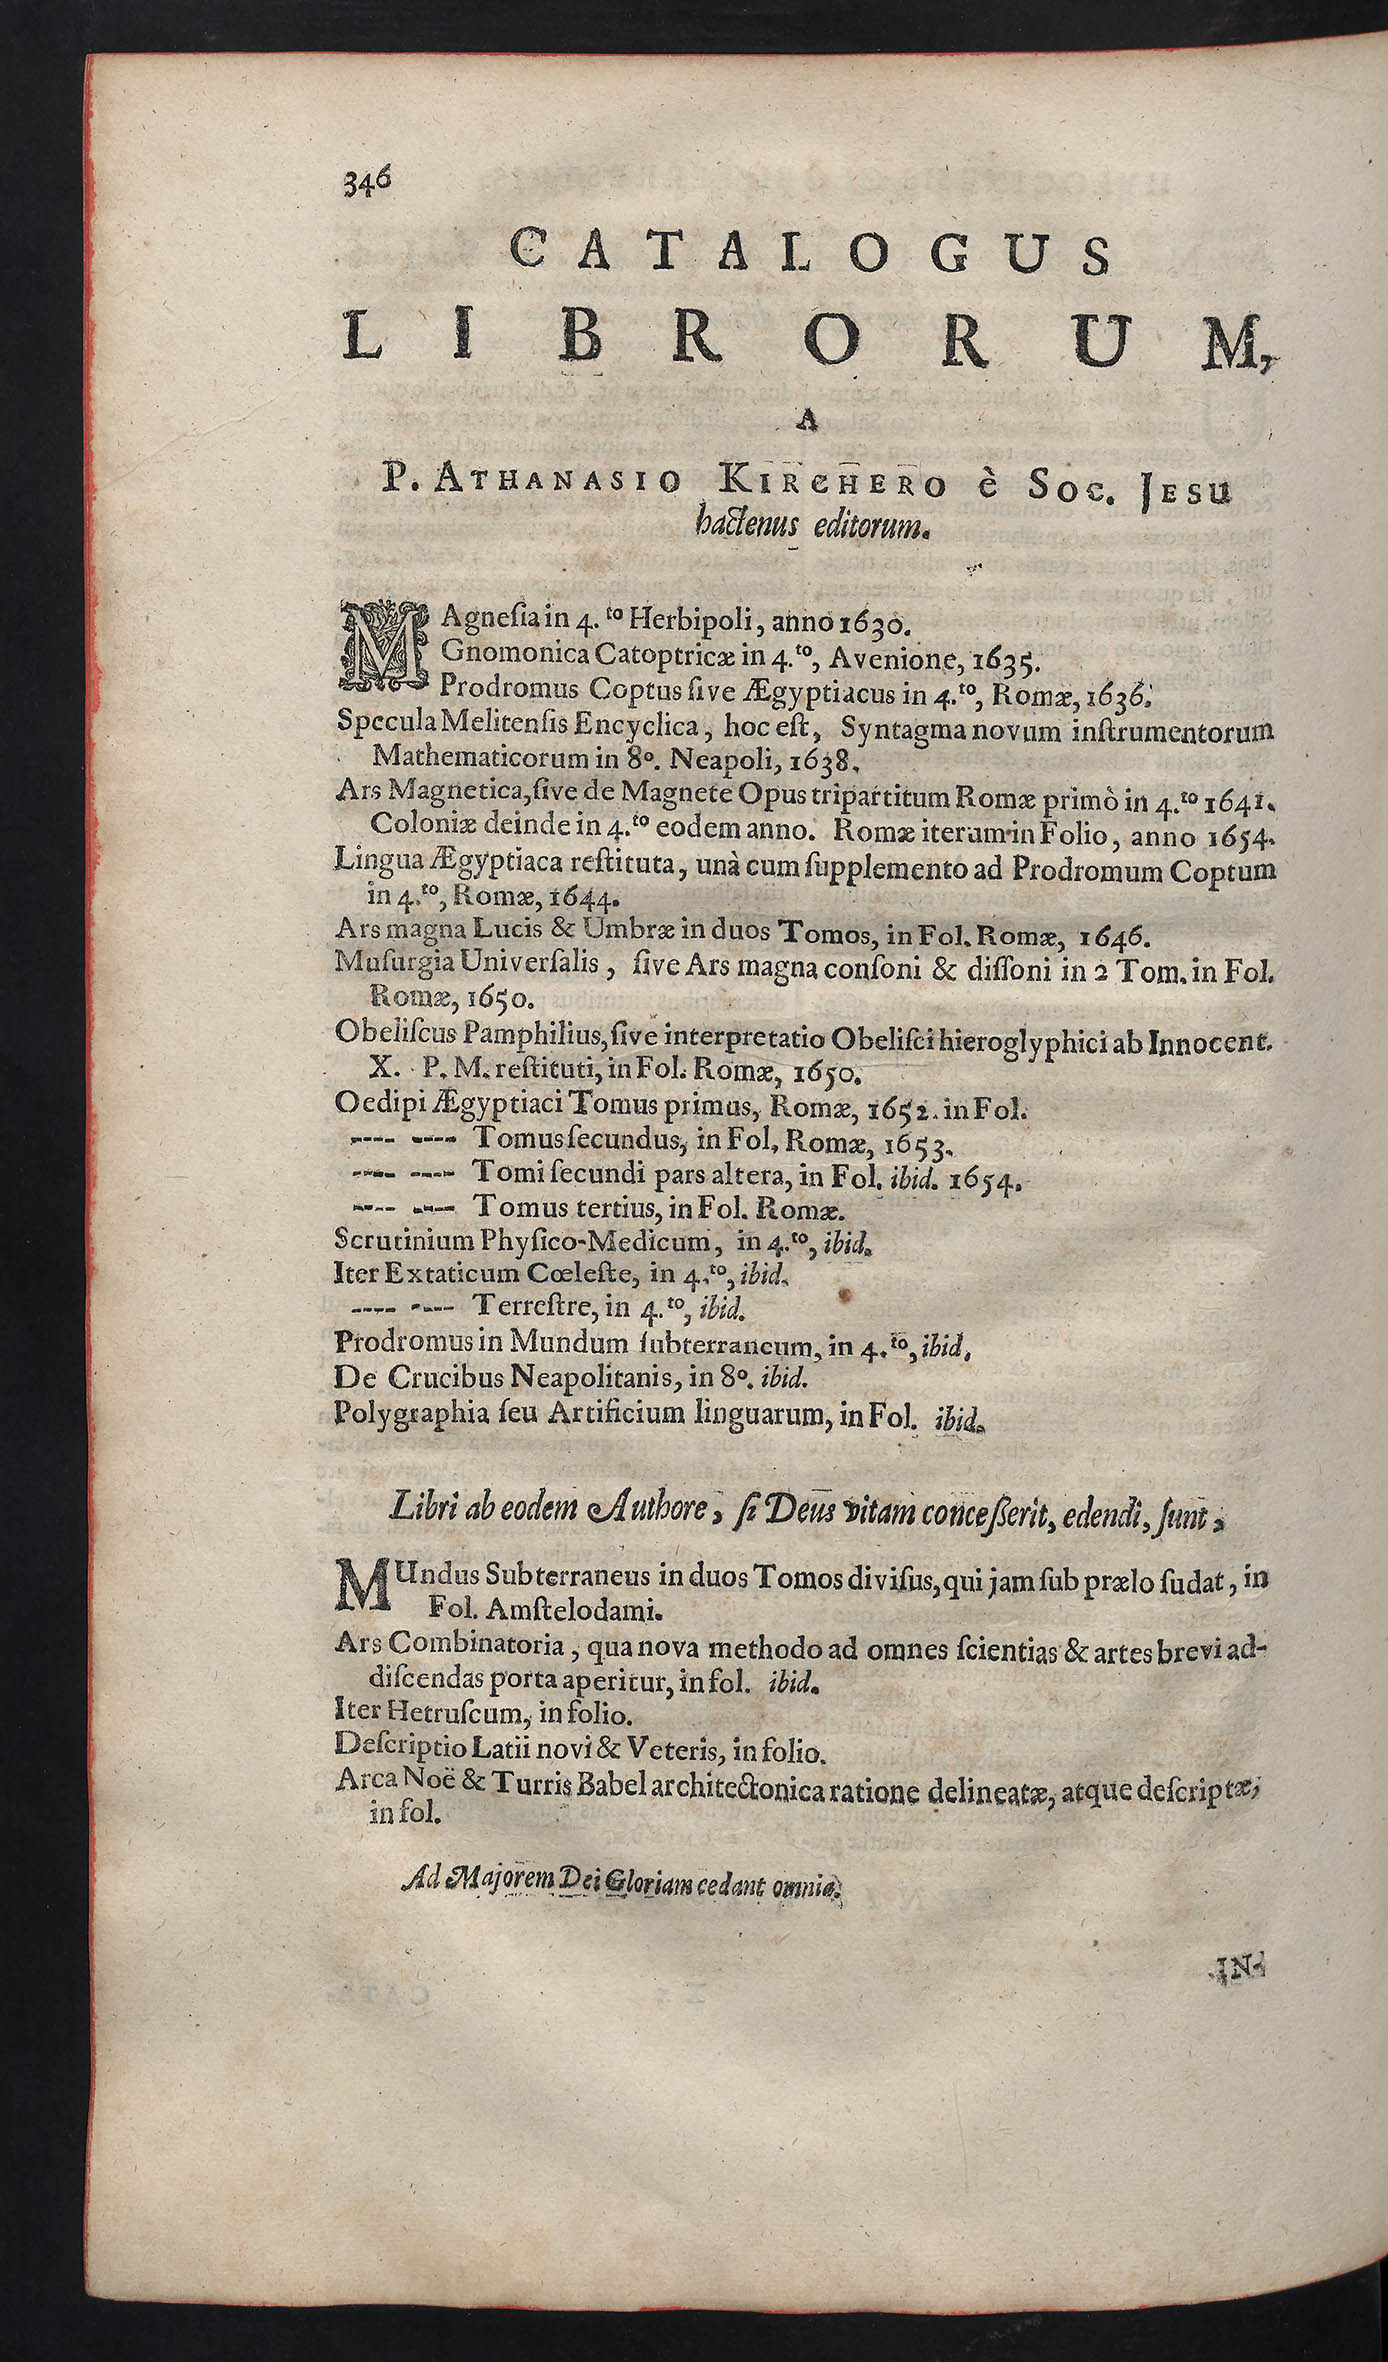 346
CATALOGUS
LIBRORUM,
A
P. ATHANASIO KIRCHERO è SOC. JESU
hactenus editorum.
MAgneſia in 4.to Herbipoli, anno 1630.
Gnomonica Catoptricæ in 4.to, Avenione, 1635.
Prodromus Coptus ſive Ægyptiacus in 4.to, Romæ, 1636.
Specula Melitenſis Encyclica, hoc eſt, Syntagma novum inſtrumentorum
Mathematicorum in 8o. Neapoli, 1638.
Ars Magnetica, ſive de Magnete Opus tripartitum Romæ primò in 4.to 1641.
Coloniæ deinde in 4.to eodem anno. Romæ iterum in Folio, anno 1654.
Lingua Ægyptiaca reſtituta, unà cum ſupplemento ad Prodromum Coptum
in 4.to, Romæ, 1644.
Ars magna Lucis & Umbræ in duos Tomos, in Fol. Romæ, 1646.
Muſurgia Univerſalis, ſive Ars magna conſoni & diſſoni in 2 Tom. in Fol.
Romæ, 1650.
Obeliſcus Pamphilius, ſive interpretatio Obeliſci hieroglyphici ab Innocent.
X. P. M. reſtituti, in Fol. Romæ, 1650.
Oedipi Ægyptiaci Tomus primus, Romæ, 1652. in Fol.
---- ---- Tomus ſecundus, in Fol. Romæ, 1653.
---- ---- Tomi ſecundi pars altera, in Fol. ibid. 1654.
---- ---- Tomus tertius, in Fol. Romæ.
Scrutinium Phyſico-Medicum, in 4.to, ibid.
Iter Extaticum Cœleſte, in 4.to, ibid.
---- ---- Terreſtre, in 4.to, ibid.
Prodromus in Mundum ſubterraneum, in 4.to, ibid.
De Crucibus Neapolitanis, in 8o. ibid.
Polygraphia ſeu Artificium linguarum, in Fol. ibid.
Libri ab eodem Authore, ſi Deus vitam conceßerit, edendi, ſunt,
MUndus Subterraneus in duos Tomos diviſus, qui jam ſub prælo ſudat, in
Fol. Amſtelodami.
Ars Combinatoria, qua nova methodo ad omnes ſcientias & artes brevi ad-
diſcendas porta aperitur, in fol. ibid.
Iter Hetruſcum, in folio.
Deſcriptio Latii novi & Veteris, in folio.
Arca Noë & Turris Babel architectonica ratione delineatæ, atque deſcriptæ,
in fol.
Ad Majorem Dei Gloriam cedant omnia.